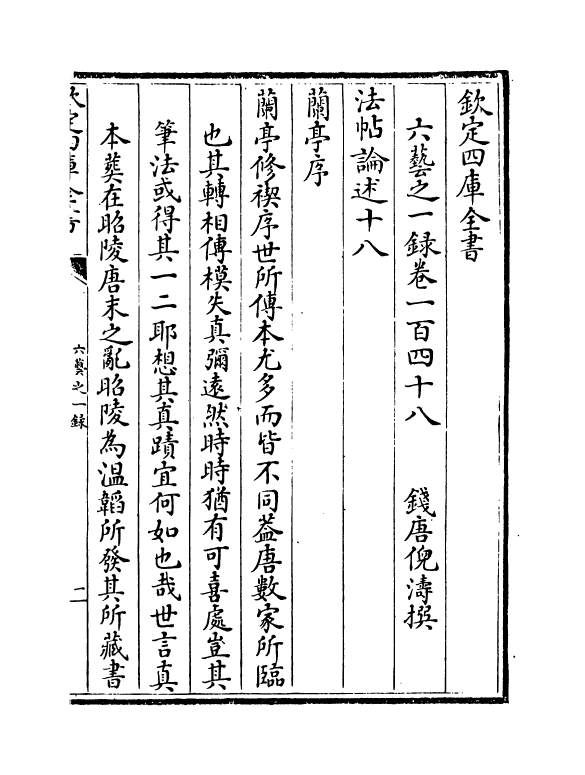 欽定四庫全書
六藝之一録卷一百四十八 錢唐倪濤撰
法帖論述十八
蘭亭序
蘭亭修禊序世所傳本尤多而皆不同葢唐數家所臨
也其轉相傳模失真彌遠然時時猶有可喜處豈其
筆法或得其一二耶想其真蹟宜何如也哉世言真
本葬在昭陵唐末之亂昭陵為温韜所發其所藏書
欽定四庫全書
六藝之一録
二